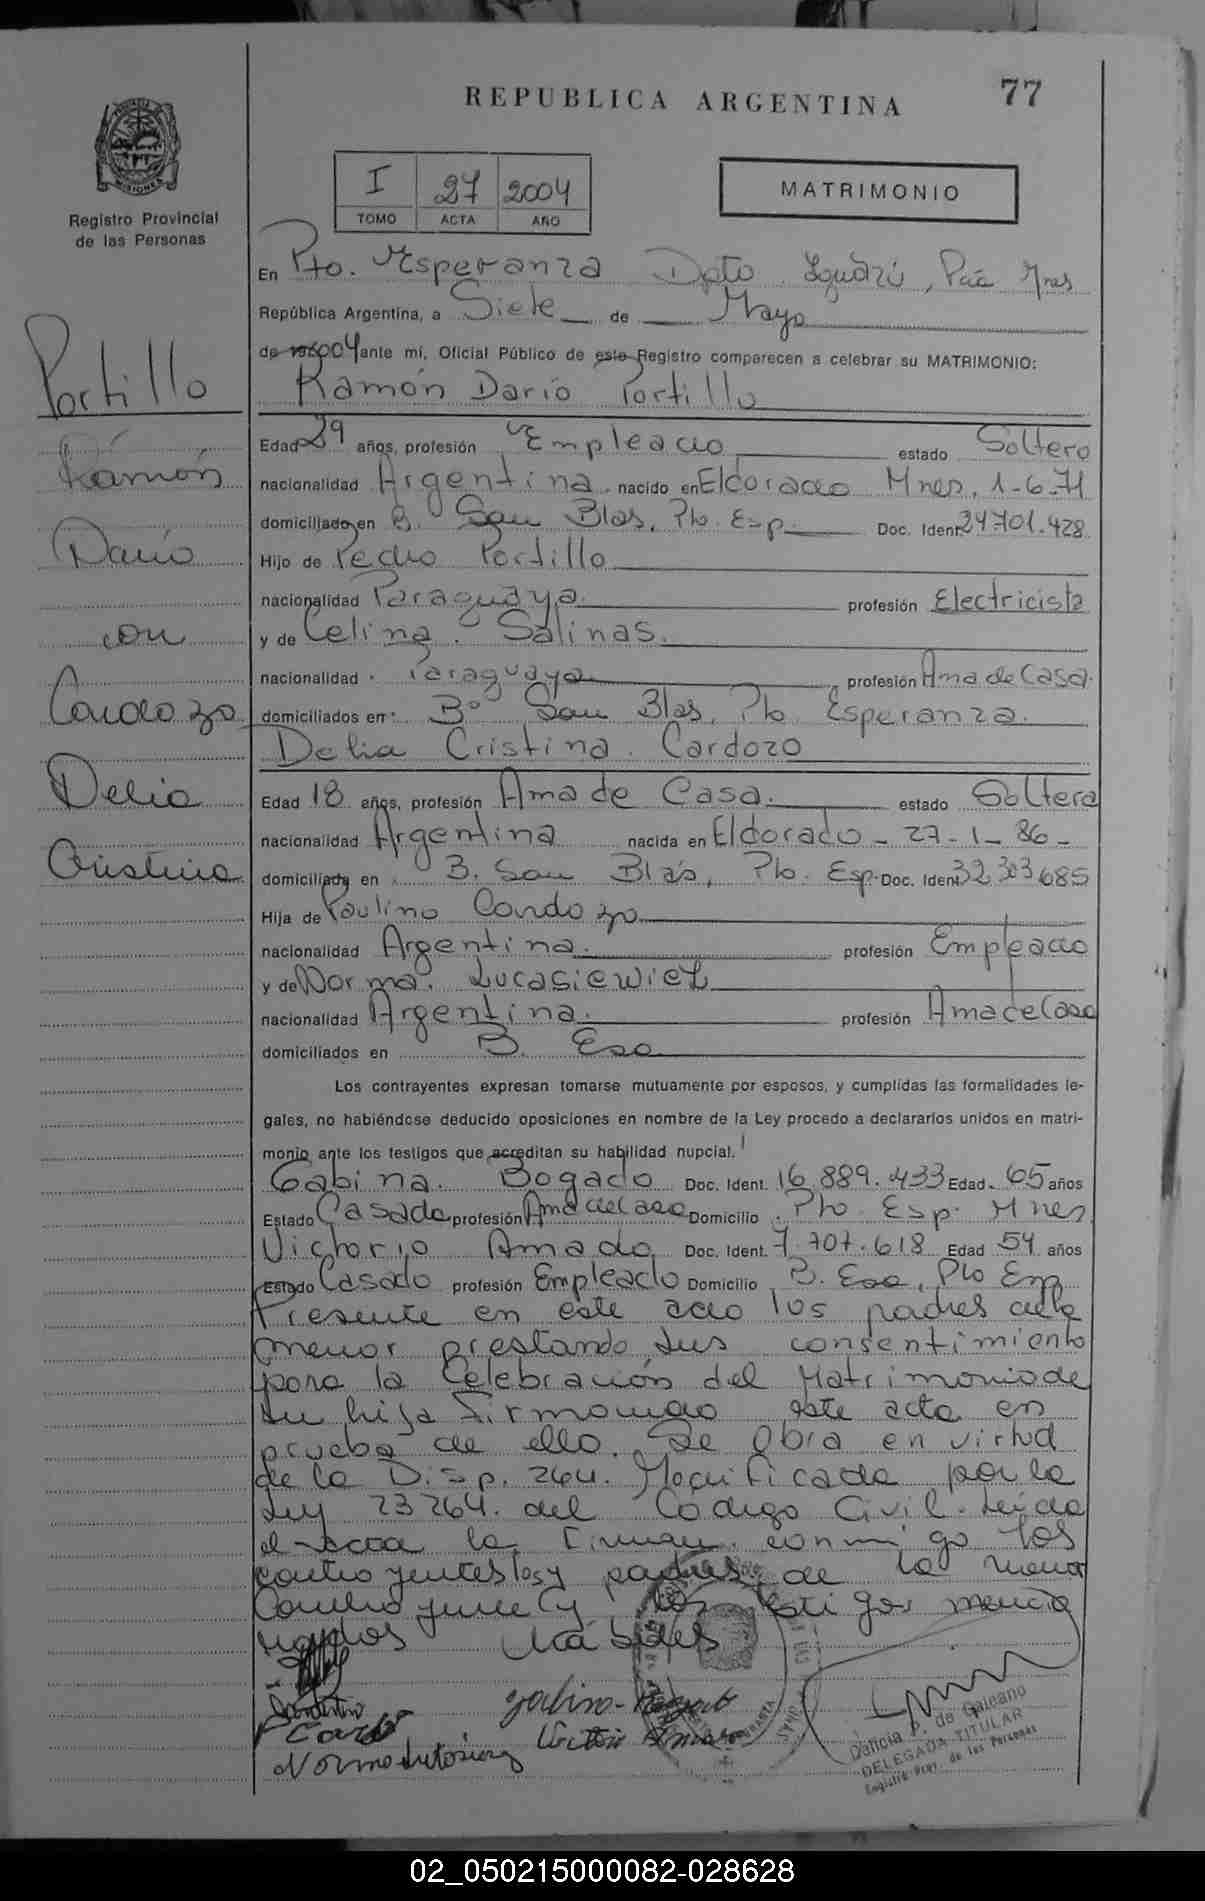 REPUBLICA ARGENTINA
77
PROVINCIA DE
MISIONES
Registro Provincial
de las Personas
I 27 2004
TOMO ACTA AÑO
MATRIMONIO
En Pto. Esperanza Dpto Iguazú, Pcia Mnes
República Argentina, a Siete de Mayo
de 2004 ante mí, Oficial Público de este Registro comparecen a celebrar su MATRIMONIO:
Ramón Darío Portillo
Portillo
Ramón
Darío
con
Cardozo
Delia
Cristina
Edad 29 años, profesión Empleado estado Soltero
nacionalidad Argentina nacido en Eldorado Mnes, 1-6-71
domiciliado en B. San Blas, Pto. Esp. Doc. Ident. 24.701.428
Hijo de Pedro Portillo
nacionalidad Paraguaya profesión Electricista
y de Celina Salinas
nacionalidad Paraguaya profesión Ama de Casa
domiciliados en Bº San Blas, Pto Esperanza
Delia Cristina Cardozo
Edad 18 años, profesión Ama de Casa estado Soltera
nacionalidad Argentina nacida en Eldorado - 27-1-86-
domiciliada en B. San Blas, Pto. Esp. Doc. Ident. 32.303.685
Hija de Paulino Cardozo
nacionalidad Argentina profesión Empleado
y de Norma Lucasiewicz
nacionalidad Argentina profesión Ama de Casa
domiciliados en B. Esa
Los contrayentes expresan tomarse mutuamente por esposos, y cumplidas las formalidades le-
gales, no habiéndose deducido oposiciones en nombre de la Ley procedo a declararlos unidos en matri-
monio ante los testigos que acreditan su habilidad nupcial.
Gabina Bogado Doc. Ident. 16.889.433 Edad 65 años
Estado Casada profesión Ama de Casa Domicilio Pto. Esp. Mnes
Victorio Amado Doc. Ident. 7.707.618 Edad 54 años
Estado Casado profesión Empleado Domicilio B. Esa, Pto Esp
Presente en este acto los padres de la
menor prestando sus consentimiento
para la Celebración del Matrimonio de
su hija firmando este acta en
prueba de ello. Se obra en virtud
de la Disp. 264. Modificada por la
Ley 23264. del Codigo Civil. Leida
el acta la firman conmigo los
contrayentes los y padres de la menor
contrayente y los testigos mencio
nados
Cardo
Victorio Amado
Dalicia P. de Galeano
DELEGADA TITULAR
Registro Prov. de las Personas
02_050215000082-028628